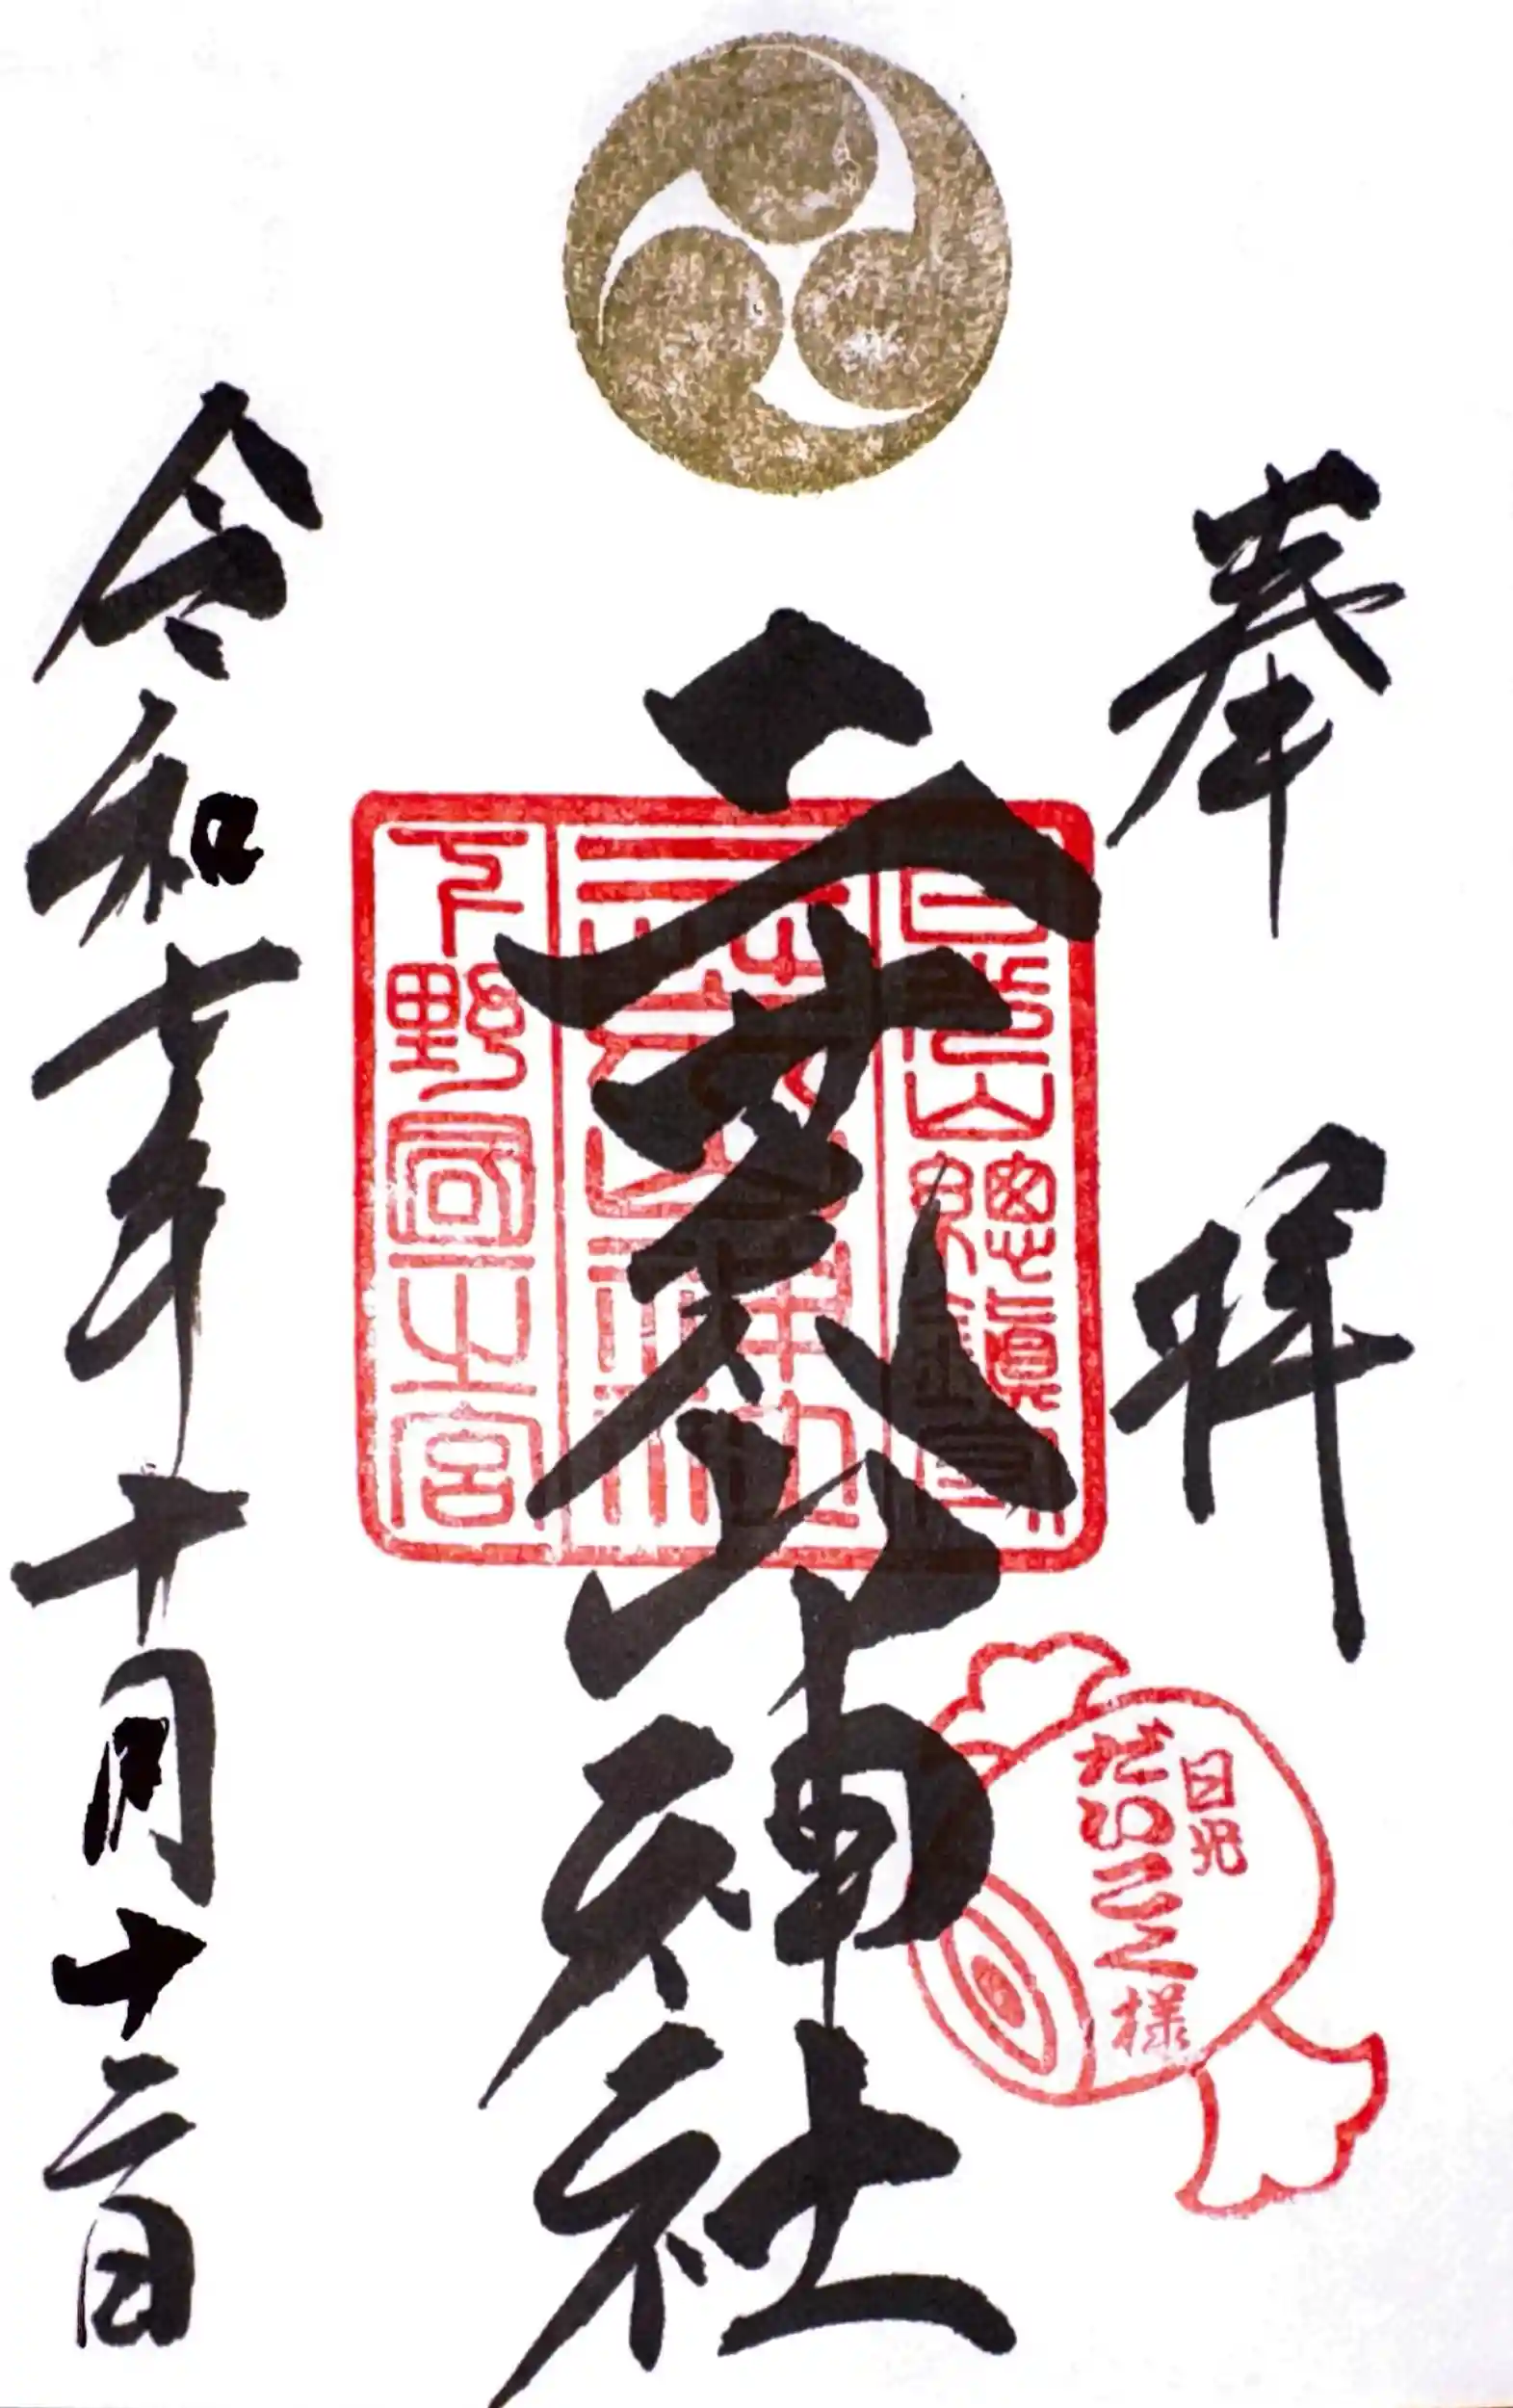 奉拝
二荒山神社
令和七年十月十二日
日光山總鎮守
下野國一之宮
日光
だいこく様